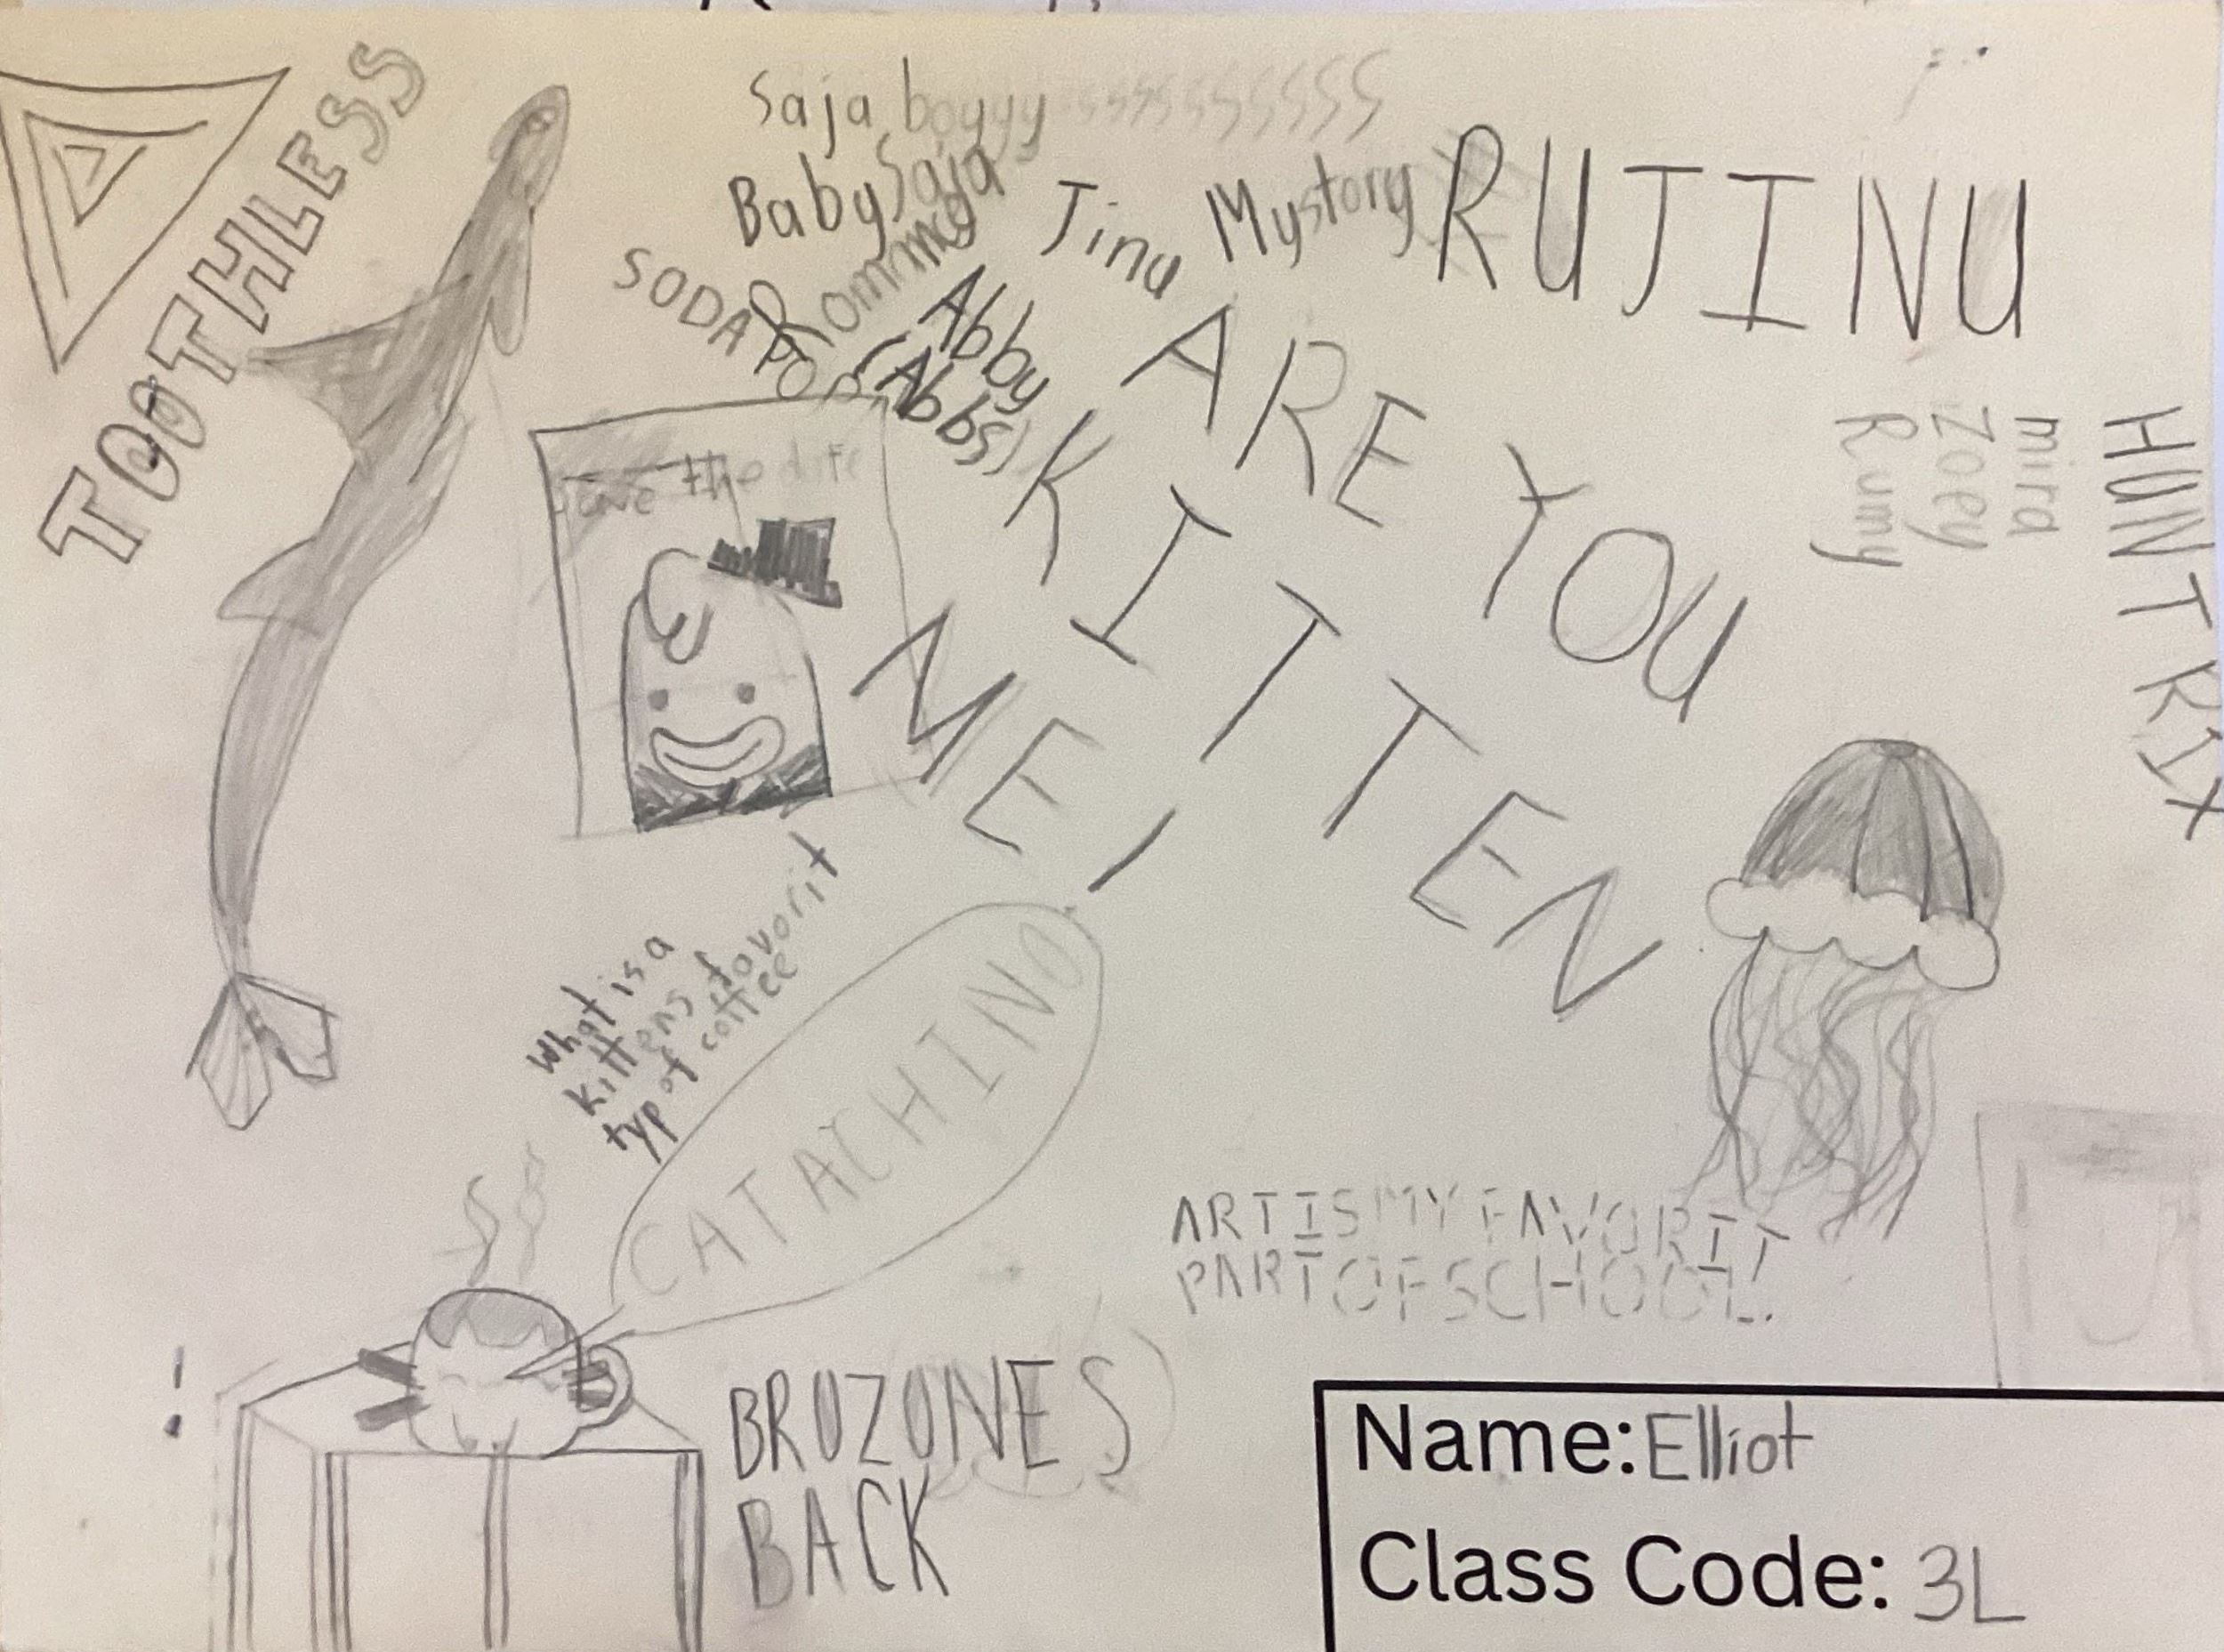 TOOTHLESS
Saja boyyysssssssssss
Baby Saja
Jinu
Mystory
RUJINU
Rommnce
SODA POP
Abby
(Abbs)
ARE YOU
KITTEN
ME!
HUNTRIX
mira
Zoey
Rumy
Save the date
What is a
kittens favorit
typ of coffee
CATACHINO
ART IS MY FAVORIT
PART OF SCHOOL.
!
BROZONES
BACK
Name: Elliot
Class Code: 3L